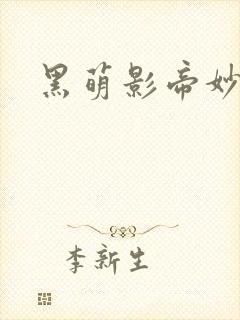 黑萌影帝妙
李新生